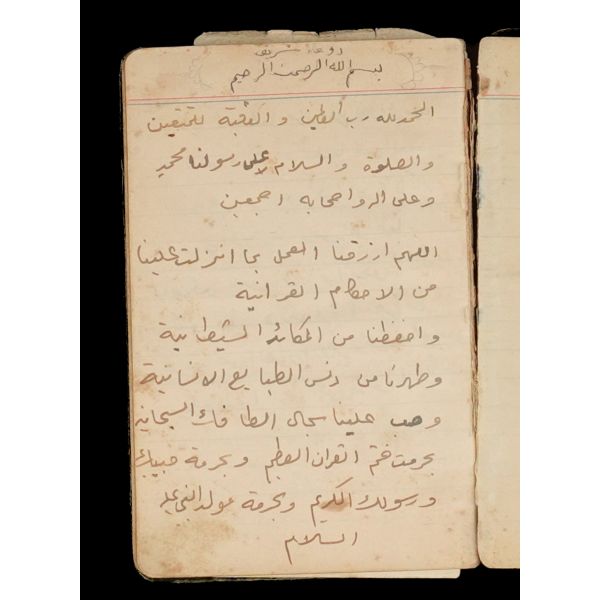 دوعاء شريف
بسم الله الرحمن الرحيم
الحمد لله رب العالمين و العقبة للمتقين
والصلوة والسلام على رسولنا محمد
وعلى اله واصحابه اجمعين
اللهم ارزقنا العمل بما انزلت علينا
من الاحكام القرانية
واحفظنا من المكائد الشيطانية
وطهرنا من دنس الطبايع الانسانية
وصب علينا سجال الطافك السبحانية
بحرمت ختم القران العظيم وبحرمة حبيبك
ورسولك الكريم وبحرمة مولد النبي عليه
السلام